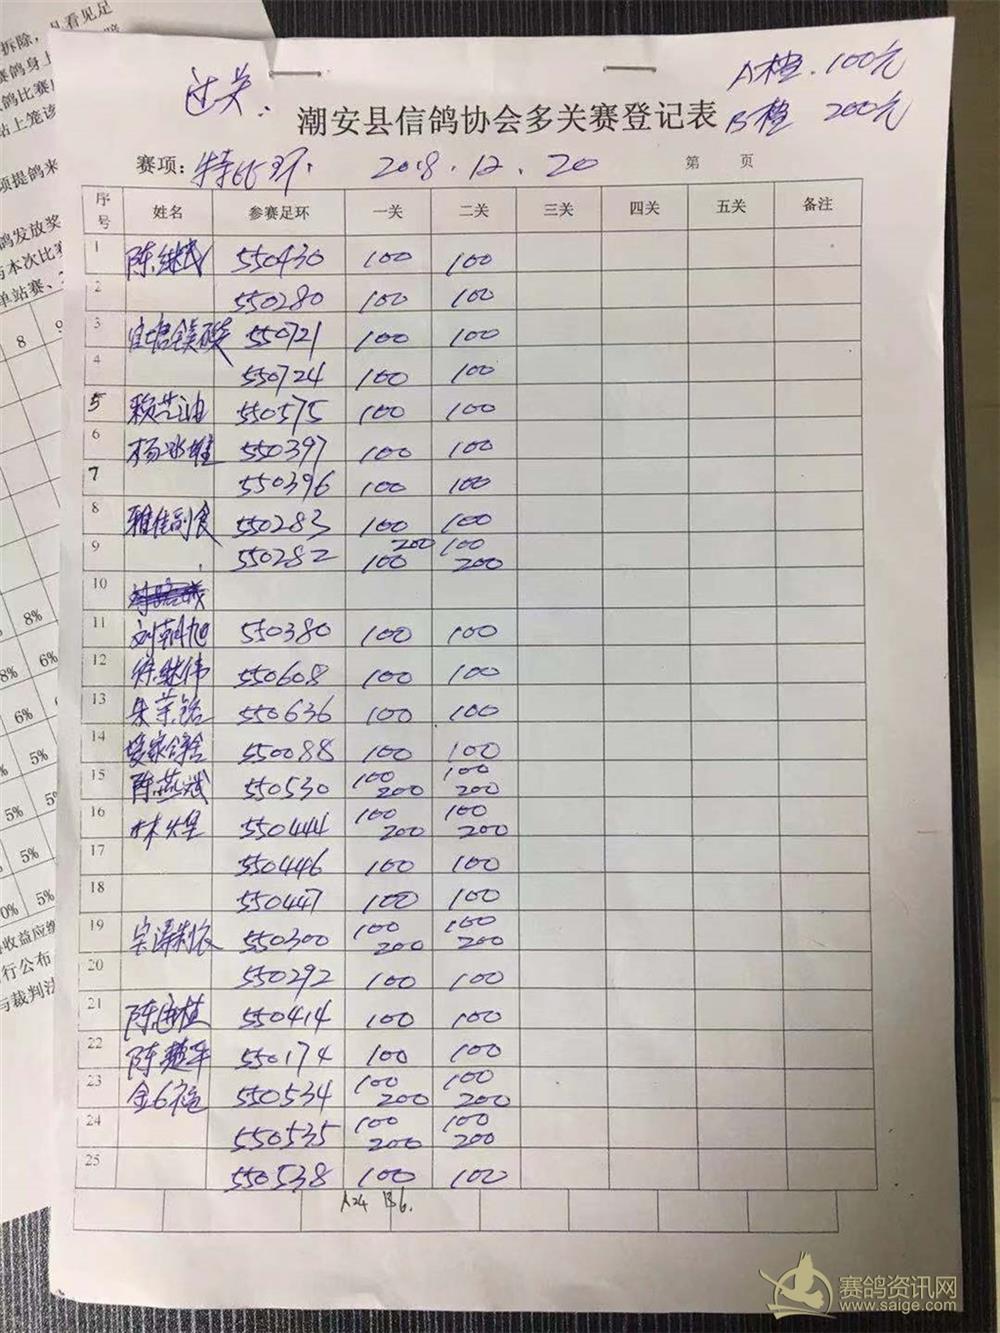 且看见足
拆除，
赛鸽身上
鸽比赛
站上笼该
项提鸽来
鸽发放奖
与本次比赛
单站赛、
8 9
8%
8% 6%
6% 6%
5%
5% 5%
5%
0% 5%
收益应缴
行公布
与裁判法
过关: A档.100元
潮安县信鸽协会多关赛登记表 B档 200元
赛项: 特比环. 2018.12.20 第 页
序号 姓名 参赛足环 一关 二关 三关 四关 五关 备注
1 陈继武 550430 100 100
2 550280 100 100
3 550721 100 100
4 550724 100 100
5 赖芝油 550575 100 100
6 杨冰雄 550397 100 100
7 550396 100 100
8 雅佳副食 550283 100 100
9 550282 200 100 100 200
10
11 刘朝旭 550380 100 100
12 继伟 550608 100 100
13 朱荣铭 550636 100 100
14 550088 100 100
15 陈燕斌 550530 100 200 100 200
16 林煌 550444 100 200 100 200
17 550446 100 100
18 550447 100 100
19 宗泽制衣 550300 100 200 100 200
20 550292 100 100
21 陈 植 550414 100 100
22 陈楚平 550174 100 100
23 金6福 550534 100 200 100 200
24 550535 100 200 100 200
25 550538 100 100
A24 B6.
赛鸽资讯网
www.saige.com